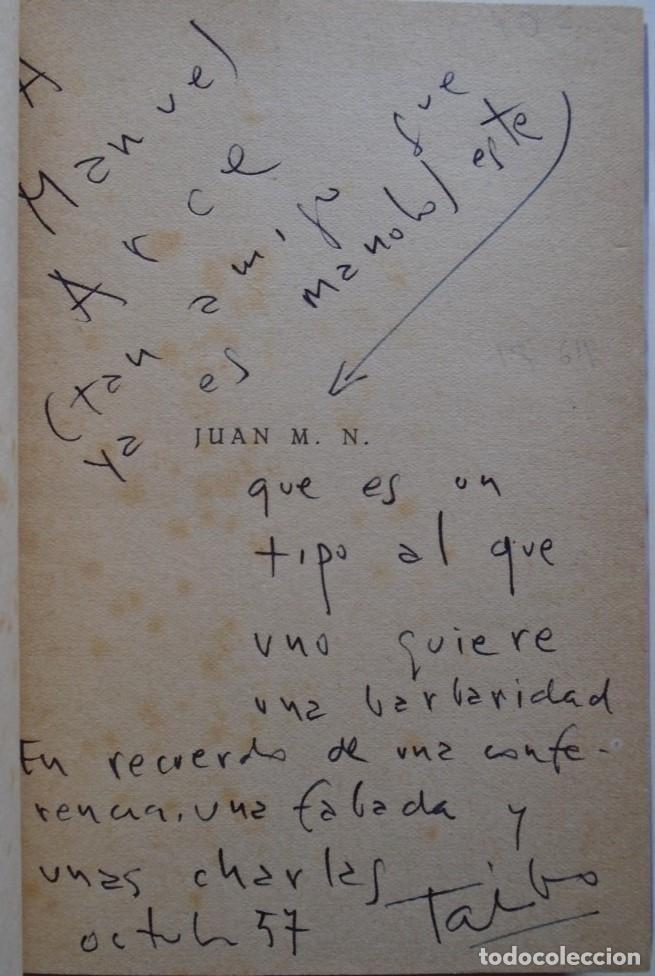 A
Manuel
Arce
(tan amigo que
ya es manolo) este
JUAN M. N.
que es un
tipo al que
uno quiere
una barbaridad
En recuerdo de una confe-
rencia, una fabada y
unas charlas
octub 57 Taibo
todocoleccion